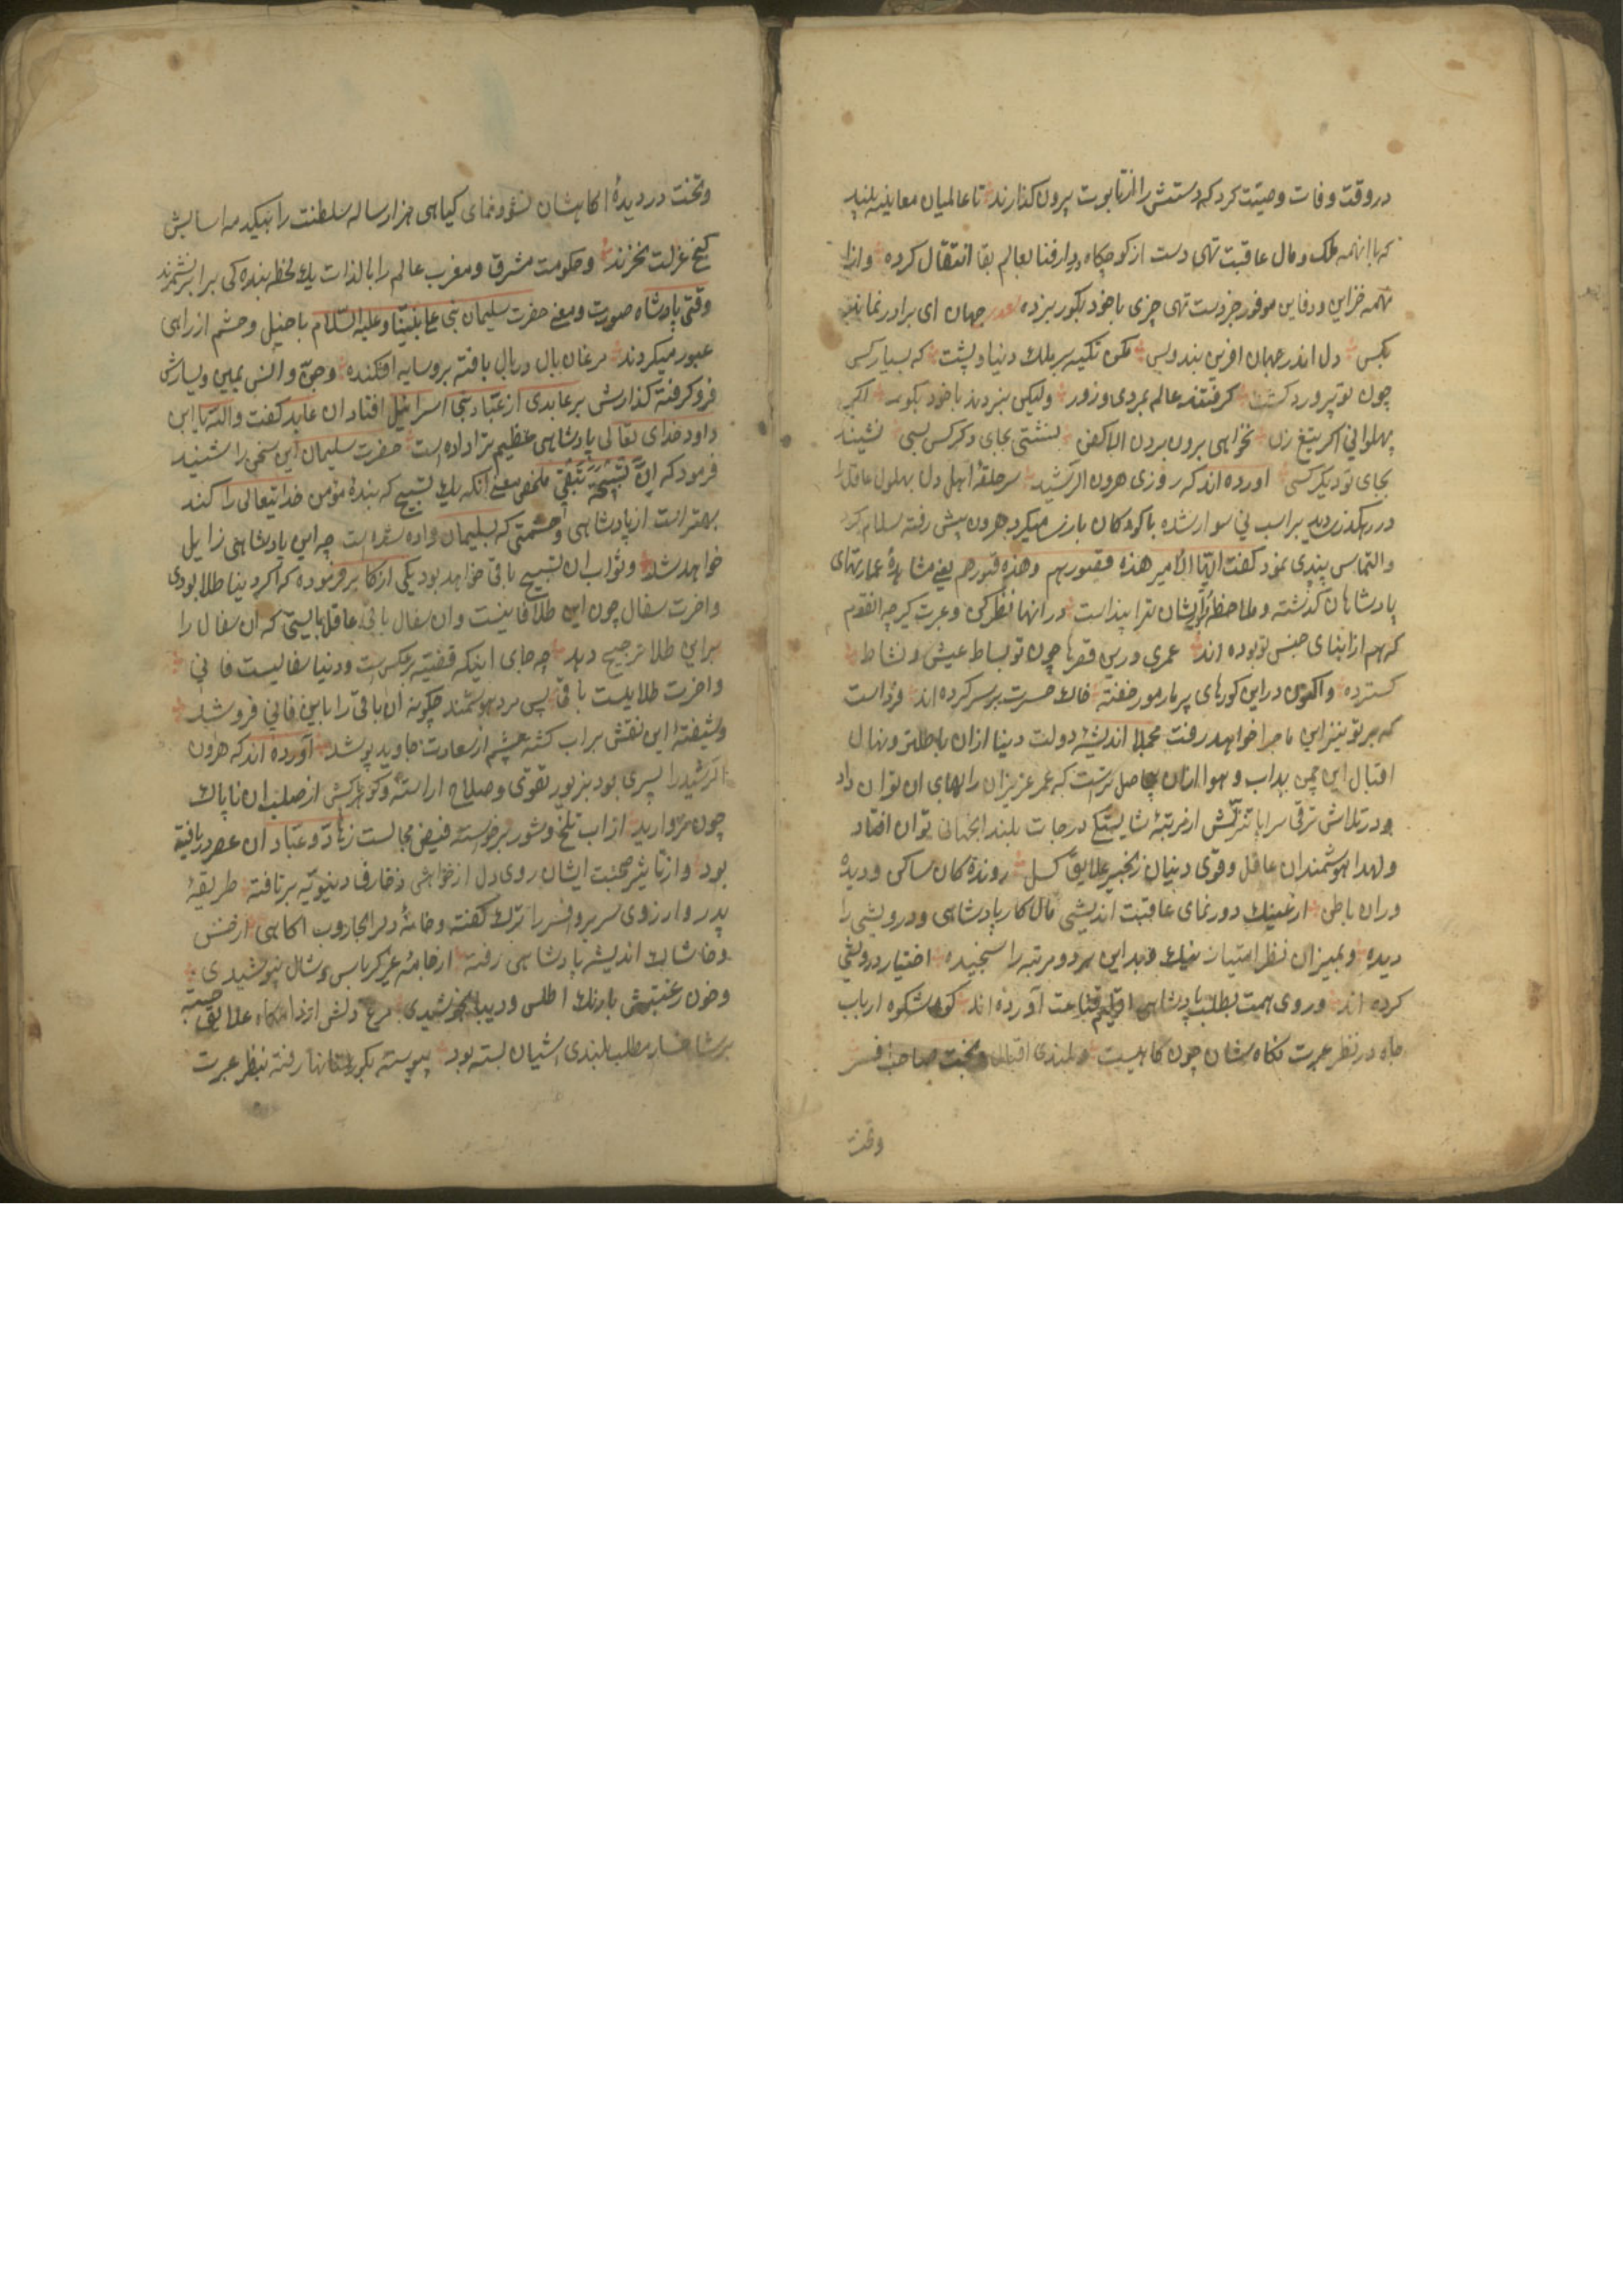 در وقت وفات وصیّت کرد که دستش را از تابوت بیرون کذارند تا عالمیان معاینه بینند
که با انهمه ملک و مال عاقبت تهی دست از کوچکاه دار فنا بعالم بقا انتقال کرده و از ان
همه خزاین و دفاین موفور جز دست تهی چیزی با خود بکور نبرده جهان ای برادر نماند
بکس دل اندر جهان افرین بند و بس مکن تکیه بر ملک دنیا و پشت که بسیار کس
چون تو پرورد کشت کرفتند عالم بمردی و زور ولیکن نبردند با خود بکور اکر
پهلوانی اکر تیغ زن نخواهی برون بردن الا کفن نشستی بجای دکر کس بسی نشیند
بجای تو دیکر کسی اورده اند که روزی هرون الرشید سر حلقهٔ اهل دل بهلول عاقل را
در رهکذر دید بر اسب نی سوار شده با کودکان بازی میکرد هرون پیش رفته سلام کرد
والتماس پندی نمود کفت ایّها الامیر هذه قصورهم وهذه قبورهم یعنی مشاهدهٔ عمارتهای
پادشاهان کذشته و ملاحظهٔ کورایشان ترا پند است در انها نظر کن و عبرت کیر چه انقوم
که هم از ابنای جنس تو بوده اند عمری در این قصرها چون تو بساط عیش و نشاط
کسترده و اکنون در این کورهای پر مار مور خفته خاک حسرت بر سر کرده اند فرداست
که بر تو نیز این ماجرا خواهد رفت مجملا اندیشهٔ دولت دنیا ازان باطلتر و نهال
اقبال این چمن بی اب و هوا ازان بیحاصل تر است که عمر عزیز ان را بهای ان توان داد
و در تلاش ترقی سراپا تنزّلش از مرتبهٔ شایستکی درجات بلند انجهانی توان افتاد
و لهذا هوشمندان عاقل و قوی دینان زنجیر علایق کسل روندهٔ کان سالک و دیده
وران باطن از عینک دور نمای عاقبت اندیشی مال کار پادشاهی و درویشی را
دیده و بمیزان نظر امتیاز نیک و بد این هر دو مرتبه را سنجیده اختیار درویشی
کرده اند و روی همت بطلب پادشاهی اقلیم قناعت آورده اند کوه شکوه ارباب
جاه در نظر عبرت نکاه شان چون کاهیست و بلندی اقبال و تخت صاحب افسر
وتخت
وتخت در دیدهٔ اکاهشان نشو و نمای کیاهی هزار ساله سلطنت را بیکدمه اسایش
کنج عزلت نخرند و حکومت مشرق و مغرب عالم را با لذات یک لحظه بنده کی برابر نشمرند
وقتی پادشاه صورت و معنی حضرت سلیمان نبی علی نبیّنا و علیه السّلام با خیل و حشم از راهی
عبور میکردند مرغان بال در بال بافته بر و سایه افکنده و جنّ و انس یمین و یسارش
فرو کرفته کذارش بر عابدی از عبّاد بنی اسرائیل افتاد ان عابد کفت والله یا ابن
داود خدای تعالی پادشاهی عظیم ترا داده است حضرت سلیمان این سخن را شنید
فرمود که انّ تسبیحة تبقی ملخص معنی انکه یک تسبیح که بندهٔ مؤمن خدایتعالی را کند
بهتر است از پادشاهی و حشمتی که بسلیمان داده شده است چه این پادشاهی زایل
خواهد شد و ثواب ان تسبیح باقی خواهد بود یکی از اکابر فرموده که اکر دنیا طلا بودی
و اخرت سفال چون این طلا فانیست و ان سفال باقی عاقل بایستی که ان سفال را
بر این طلا ترجیح دهد چه جای اینکه قضیّه بر عکس است و دنیا سفالیست فانی
و اخرت طلایست باقی پس مرد هوشمند چکونه ان باقی را باین فانی فروشد
و شیفتهٔ این نقش بر اب کشته چشم از سعادت جاوید پوشد آورده اند که هرون
الرشید را پسری بود بزیور تقوی و صلاح اراسته و کوهرکش از صلب ان ناپاک
چون مروارید از اب تلخ و شور برخواسته فیض مجالست زهّاد و عبّاد ان عصر دریافته
بود و از تأثیر صحبت ایشان روی دل از خواهش زخارف دنیویّه برتافته طریقهٔ
پدر و ارزوی سریر و افسر را ترک کفته و خانهٔ دلرا بجاروب اکاهی از خس
و خاشاک اندیشه پادشاهی رفته از جامه غیر کرباس و شال نپوشیدی
و خون رغبتش با رنک اطلس و دیبا نجوشیدی مرغ دلش از دامکاه علایق جسته
بر شاخسار مطلب بلندی اشیان بسته بود پیوسته بکورستانها رفته بنظر عبرت